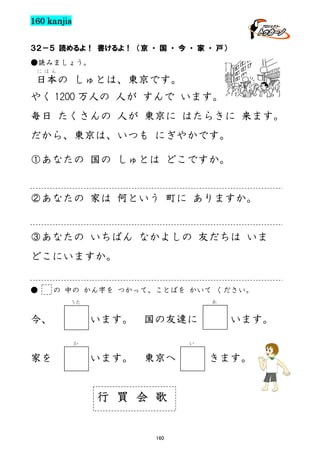 160 kanjis
プロジェクト
３２－５ 読めるよ！ 書けるよ！（京・国・今・家・戸）
●読みましょう。
にほん
日本の しゅとは、東京です。
やく 1200 万人の 人が すんで います。
毎日 たくさんの 人が 東京に はたらきに 来ます。
だから、東京は、いつも にぎやかです。
①あなたの 国の しゅとは どこですか。
②あなたの 家は 何という 町に ありますか。
③あなたの いちばん なかよしの 友だちは いま
どこにいますか。
● の 中の かん字を つかって、ことばを かいて ください。
うた あ
今、 います。 国の友達に います。
か い
家を います。 東京へ きます。
行 買 会 歌
160